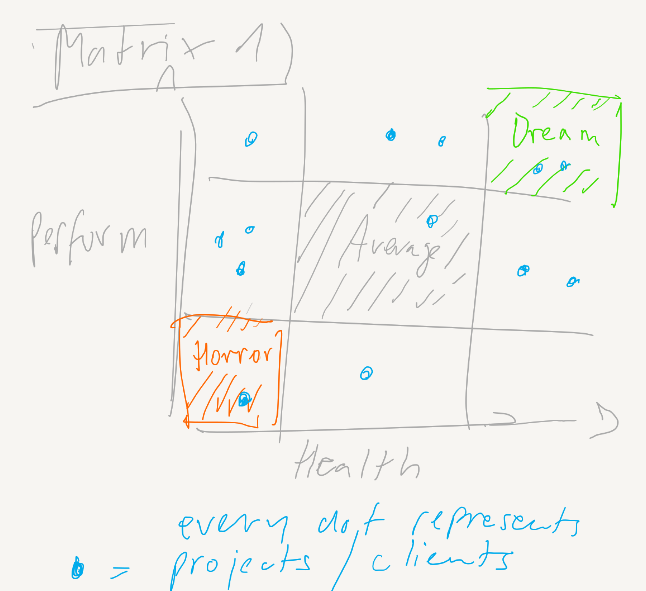 Matrix 1)
Dream
Perform
Average
Horror
Health
every dot represents
= projects / clients